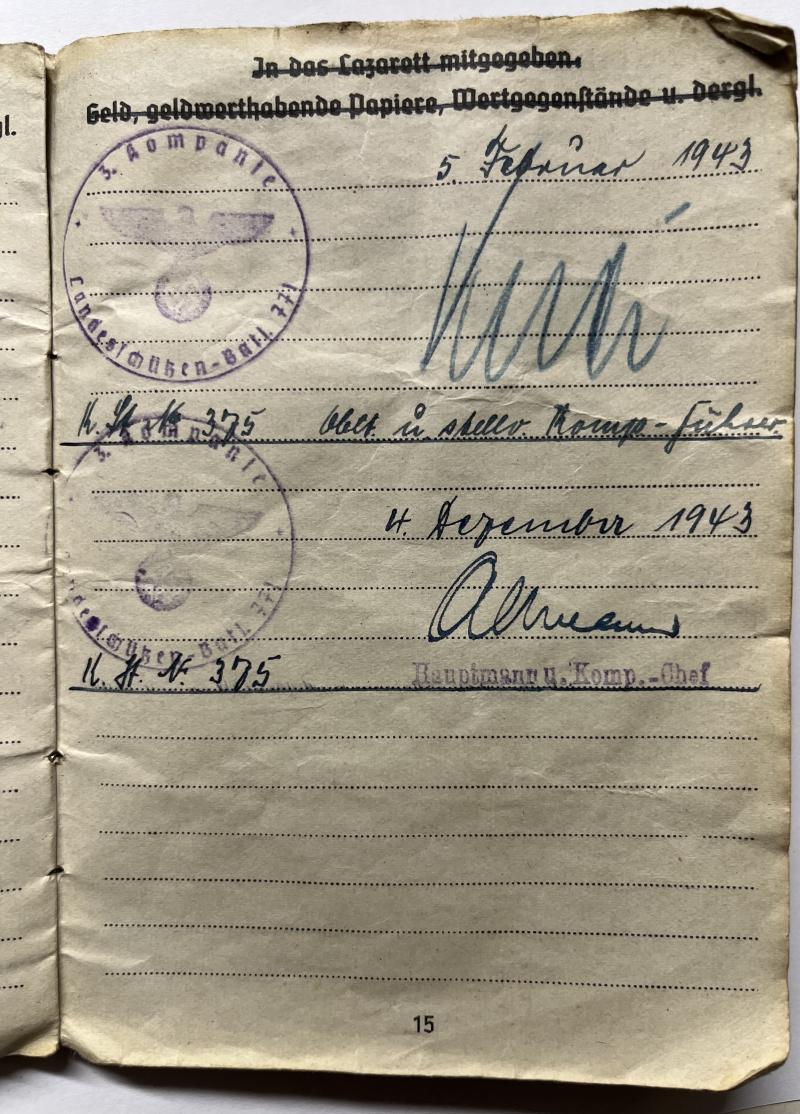 gl.
In das Lazarett mitgegeben.
Geld, geldwerthabende Papiere, Wertgegenstände u. dergl.
3. Kompanie
Landesschützen-Batl.
5. Februar 1943
K. St. N. 375 Oblt. u. stellv. Komp.-Führer
3. Kompanie
desschützen-Batl.
4. Dezember 1943
K. St. N. 375
Hauptmann u. Komp.-Chef
15